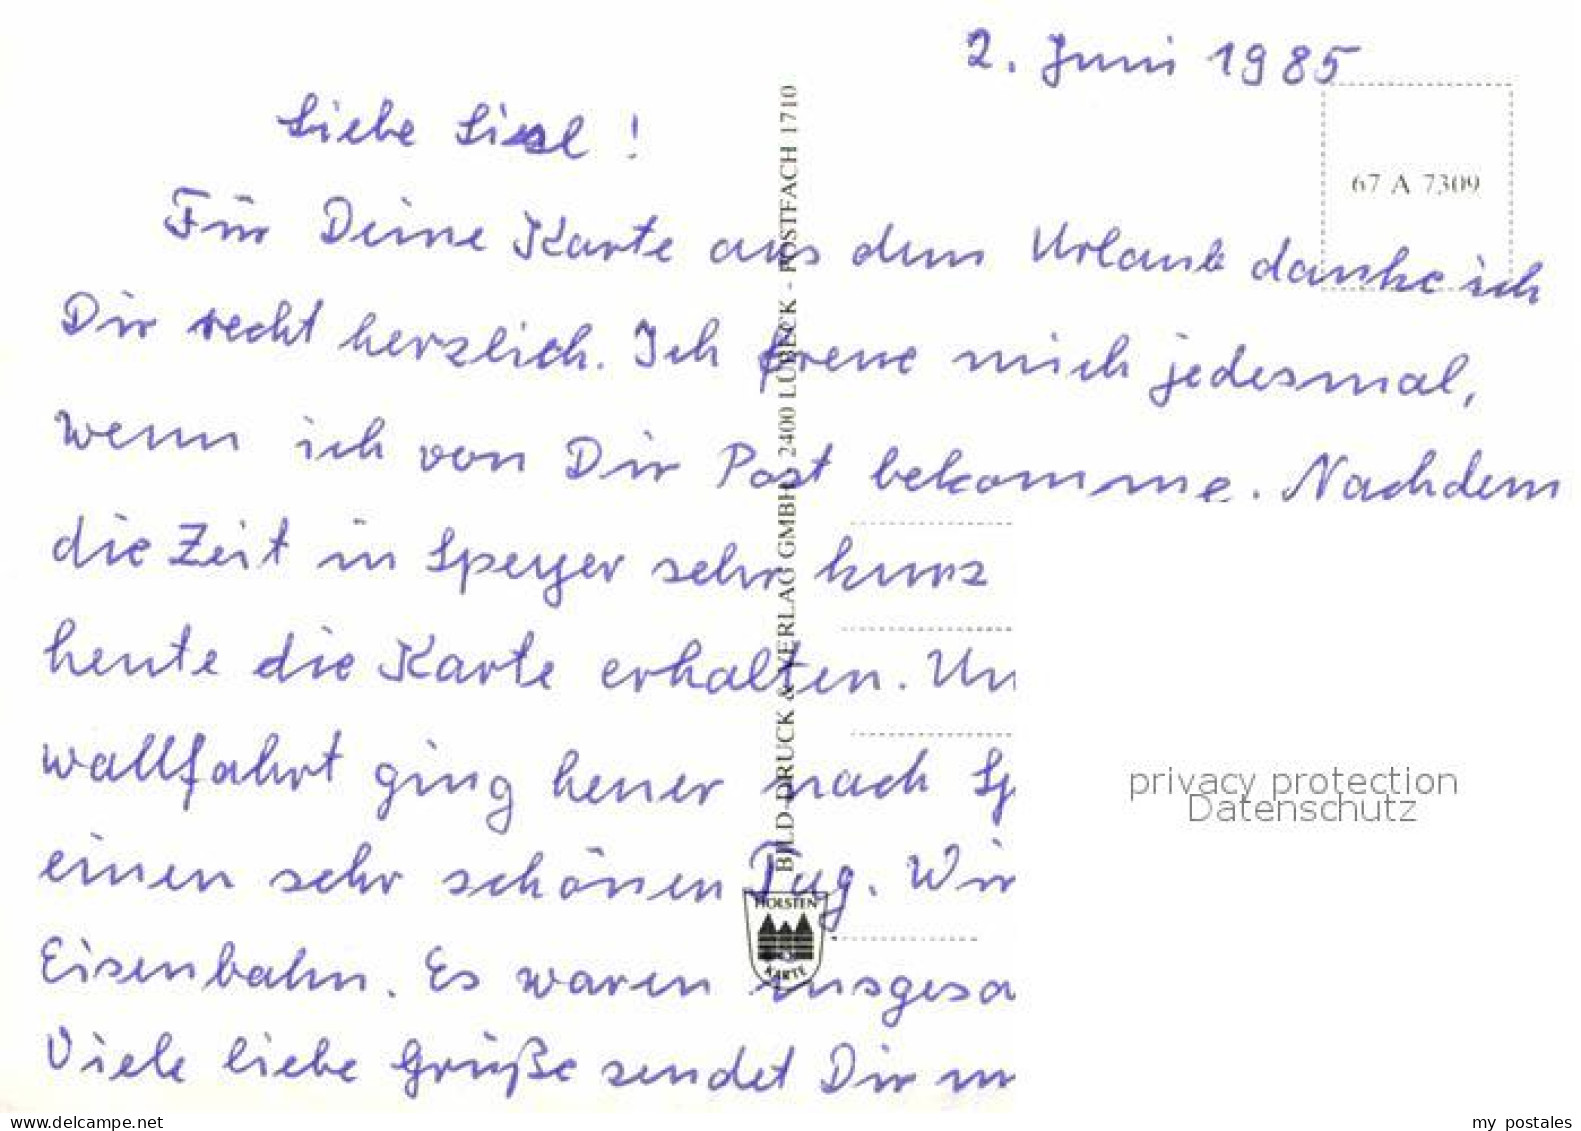 2. Juni 1985
Liebe Liesl !
67 A 7309
Für Deine Karte aus dem Urlaub danke ich
Dir recht herzlich. Ich freue mich jedesmal,
wenn ich von Dir Post bekomme. Nachdem
die Zeit in Speyer sehr kurz
heute die Karte erhalten. Un
wallfahrt ging heuer nach Sp
einen sehr schönen Tag. Wir
Eisenbahn. Es waren insgesa
Viele liebe Grüße sendet Dir
BILD-DRUCK & VERLAG GMBH, 2400 LÜBECK - POSTFACH 1710
HOLSTEN
KARTE
privacy protection
Datenschutz
www.delcampe.net
my postales